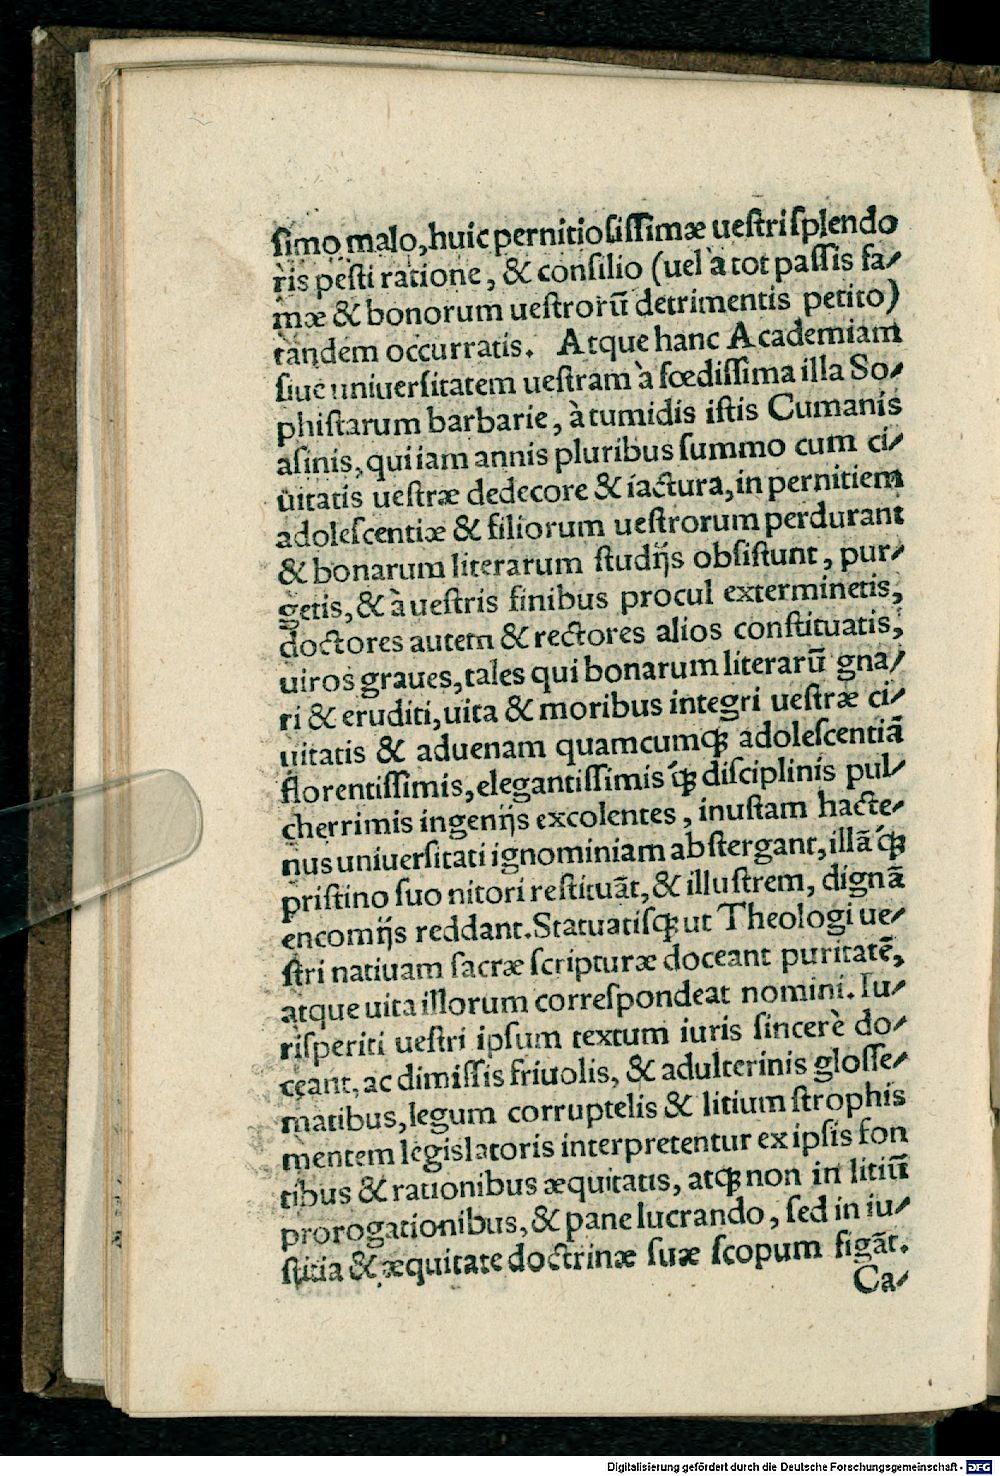 ſimo malo, huic pernitioſiſſimæ ueſtri ſplendo
ris peſti ratione, & conſilio (uel à tot paſſis fa⸗
mæ & bonorum ueſtrorū detrimentis petito)
tandem occurratis. Atque hanc Academiam
ſiue uniuerſitatem ueſtram à fœdiſſima illa So⸗
phiſtarum barbarie, à tumidis iſtis Cumanis
aſinis, qui iam annis pluribus ſummo cum ci⸗
uitatis ueſtræ dedecore & iactura, in pernitiem
adoleſcentiæ & filiorum ueſtrorum perdurant
& bonarum literarum ſtudijs obſiſtunt, pur⸗
getis, & à ueſtris finibus procul exterminetis,
doctores autem & rectores alios conſtituatis,
uiros graues, tales qui bonarum literarū gna⸗
ri & eruditi, uita & moribus integri ueſtræ ci⸗
uitatis & aduenam quamcumqꝫ adoleſcentiā
florentiſſimis, elegantiſſimisq́ꝫ diſciplinis pul⸗
cherrimis ingenijs excolentes, inuſtam hacte⸗
nus uniuerſitati ignominiam abſtergant, illāq́ꝫ
priſtino ſuo nitori reſtituāt, & illuſtrem, dignā
encomijs reddant. Statuatiſqꝫ ut Theologi ue⸗
ſtri natiuam ſacræ ſcripturæ doceant puritatē,
atque uita illorum correſpondeat nomini. Iu⸗
riſperiti ueſtri ipſum textum iuris ſincerè do⸗
ceant, ac dimiſſis friuolis, & adulterinis gloſſe⸗
matibus, legum corruptelis & litium ſtrophis
mentem legislatoris interpretentur ex ipſis fon
tibus & rationibus æquitatis, atqꝫ non in litiū
prorogationibus, & pane lucrando, ſed in iu⸗
ſtitia & æquitate doctrinæ ſuæ ſcopum figāt.
Ca⸗
Digitalisierung gefördert durch die Deutsche Forschungsgemeinschaft - DFG